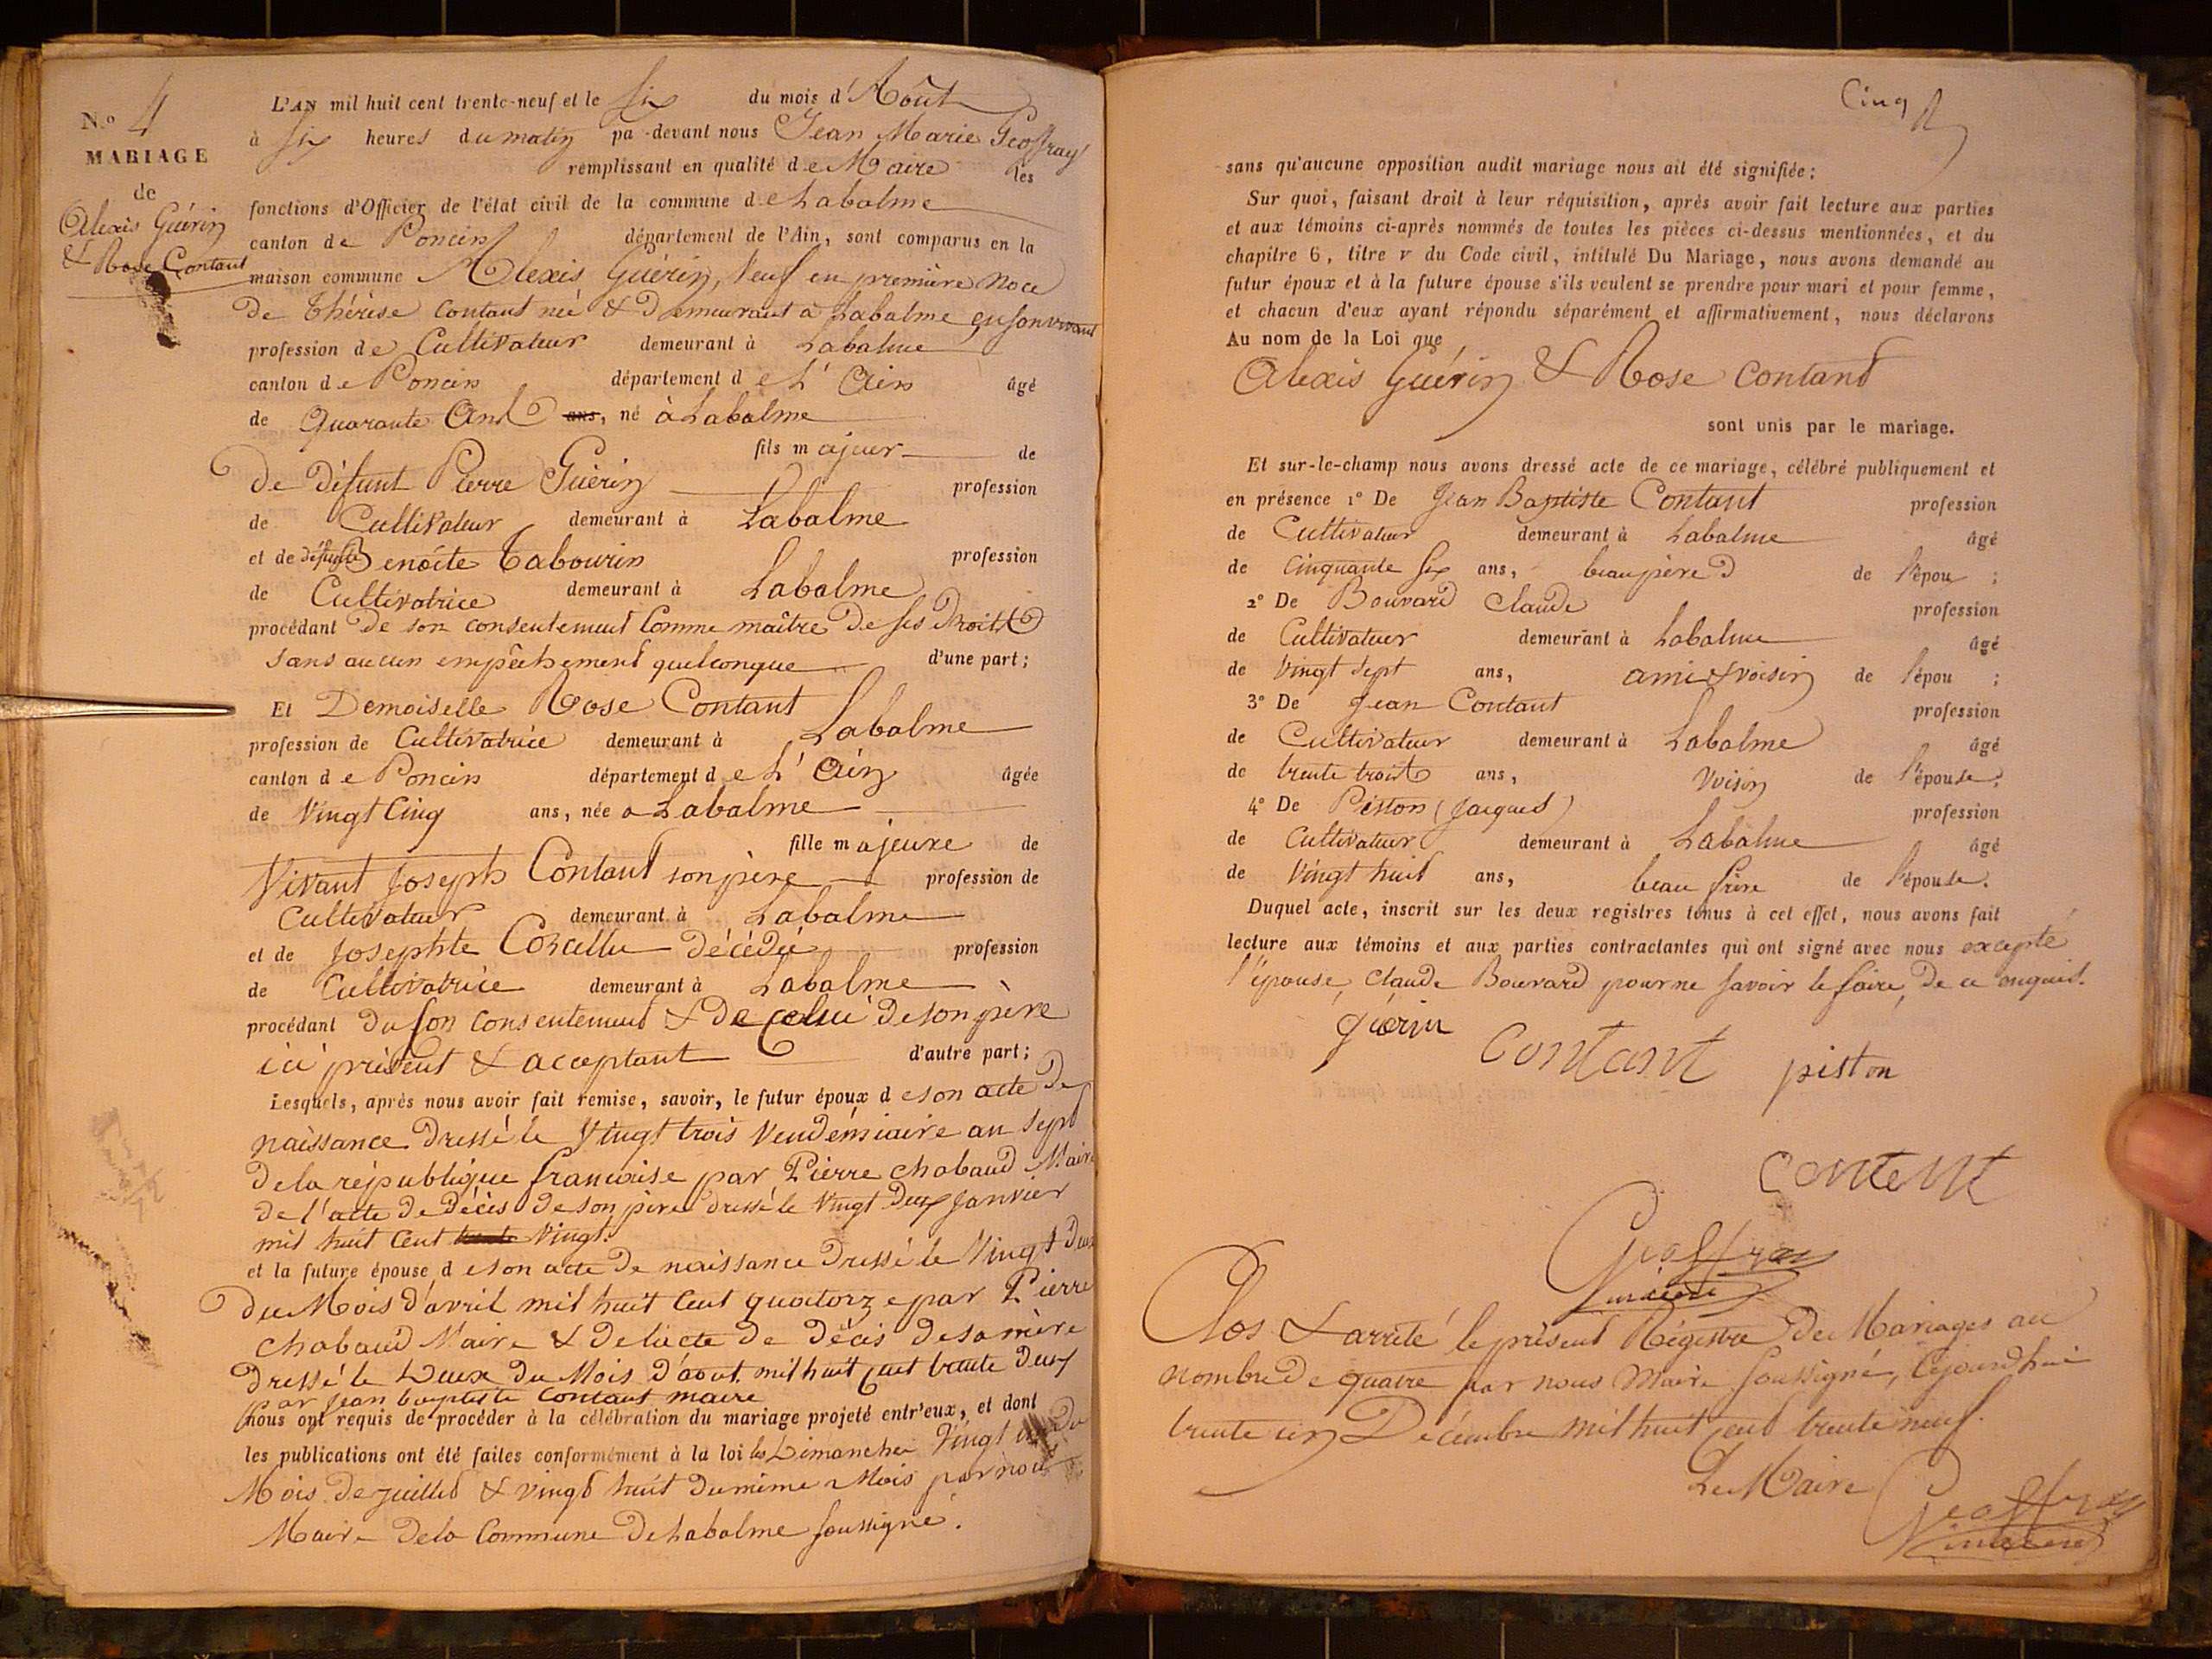 N.o 4
MARIAGE
de
Alexis Guérin
& Rose Contant
L'AN mil huit cent trente-neuf et le six du mois d'Août
à six heures du matin pa-devant nous Jean Marie Geoffray
remplissant en qualité de Maire les
fonctions d'Officier de l'état civil de la commune de Labalme
canton de Poncin département de l'Ain, sont comparus en la
maison commune Alexis Guérin, Veuf en première Noce
De thérèse Contant né & Demeurant à Labalme
profession de Cultivateur demeurant à Labalme
canton de Poncin département de L'Ain âgé
de Quarante Ans ans, né à Labalme
fils majeur de
De Défunt Pierre Guérin profession
de Cultivateur demeurant à Labalme
et de défunte Benoite Tabourin profession
de Cultivatrice demeurant à Labalme
procédant De son consentement Comme maître De ses Droits
Sans aucun empêchement quelconque d'une part;
Et Demoiselle Rose Contant
profession de Cultivatrice demeurant à Labalme
canton de Poncin département de L'Ain âgée
de Vingt Cinq ans, née a Labalme
fille majeure de
Vivant Joseph Contant son père profession de
Cultivateur demeurant à Labalme
et de Josephte Décédé profession
de Cultivatrice demeurant à Labalme
procédant du son consentement & De celui De son père
ici présent & acceptant d'autre part;
Lesquels, après nous avoir fait remise, savoir, le futur époux de son acte De
naissance Dressé le Vingt trois Vendémiaire an Sept
De la république francaise par Pierre Chabaud Maire
De l'acte De Décès De son père dressé le Vingt Deux Janvier
mil huit Cent trente Vingt.
et la future épouse de son acte De naissance Dressé le Vingt Deux
Du Mois d'avril mil huit Cent quatorze par Pierre
Chabaud Maire & De l'acte De Décès De sa mère
Dressé le Deux Du Mois D'aout mil huit Cent trente Deux
par Jean baptiste Contant maire
nous ont requis de procéder à la célébration du mariage projeté entr'eux, et dont
les publications ont été faites conformément à la loi les Dimanche Vingt un Du
Mois De juillet & vingt huit Du même Mois par nous
Maire De la Commune De Labalme soussigné.
Cinq
sans qu'aucune opposition audit mariage nous ait été signifiée;
Sur quoi, faisant droit à leur réquisition, après avoir fait lecture aux parties
et aux témoins ci-après nommés de toutes les pièces ci-dessus mentionnées, et du
chapitre 6, titre v du Code civil, intitulé Du Mariage, nous avons demandé au
futur époux et à la future épouse s'ils veulent se prendre pour mari et pour femme,
et chacun d'eux ayant répondu séparément et affirmativement, nous déclarons
Au nom de la Loi que
Alexis Guérin & Rose Contant
sont unis par le mariage.
Et sur-le-champ nous avons dressé acte de ce mariage, célébré publiquement et
en présence 1º De Jean Baptiste Contant profession
de Cultivateur demeurant à Labalme âgé
de Cinquante Six ans, beau père de l'épou ;
2º De Bouvard Claude profession
de Cultivateur demeurant à Labalme âgé
de Vingt Sept ans, ami & voisin de l'épou ;
3º De Jean Contant profession
de Cultivateur demeurant à Labalme âgé
de trente trois ans, Voisin de l'épouse;
4º De Piston (Jacques) profession
de Cultivateur demeurant à Labalme âgé
de Vingt huit ans, beau frère de l'épouse.
Duquel acte, inscrit sur les deux registres tenus à cet effet, nous avons fait
lecture aux témoins et aux parties contractantes qui ont signé avec nous excepté
l'épouse, Claude Bouvard pour ne savoir le faire, De ce enquis.
guérin
Contant piston
content
Geoffray
maire
Clos & arrêté le présent Régistre De Mariages au
nombre De quatre par nous Maire soussigné, Cejourd'hui
trente un Décembre mil huit Cent trente neuf.
Le Maire
Geoffray